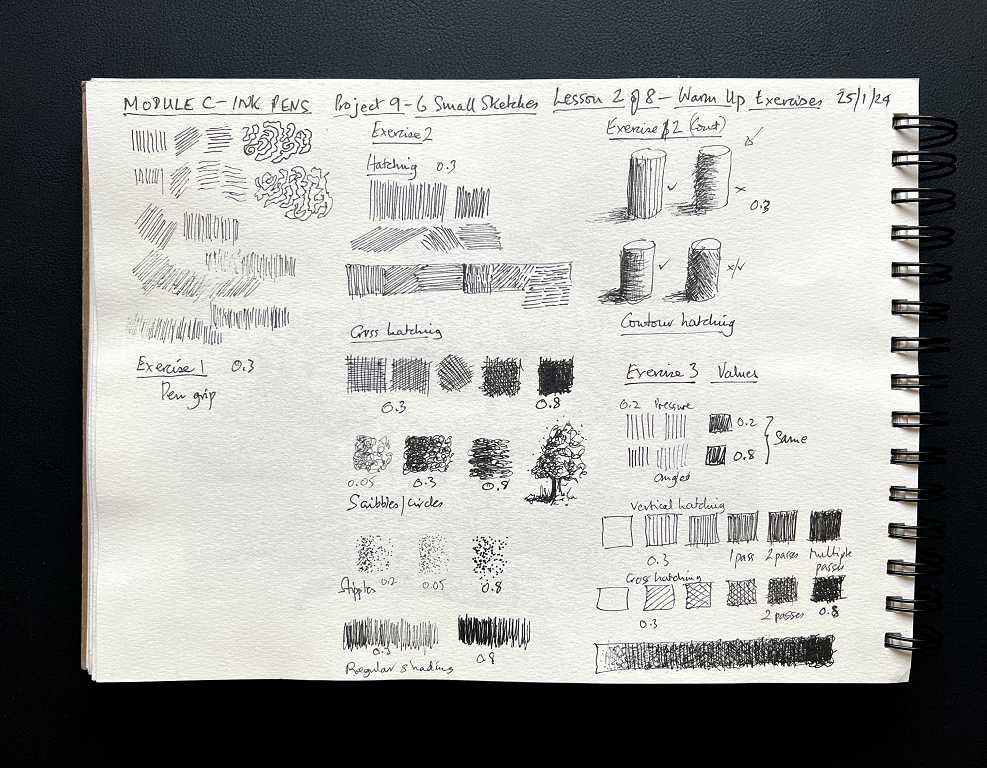 MODULE C - INK PENS Project 9 - 6 Small Sketches Lesson 2 of 8 - Warm Up Exercises 25/1/24
Exercise 1 0.3
Pen grip
Exercise 2
Hatching 0.3
Cross hatching
0.3 0.8
0.05 0.3 0.8
Scribbles/circles
Stipples 0.2 0.05 0.8
0.3 0.8
Regular shading
Exercise 2 (cont)
✓ x
0.3
✓ x/✓
Contour hatching
Exercise 3 Values
0.2 Pressure
0.2
0.8
Same
Angled
Vertical hatching
0.3 1 pass 2 passes Multiple
passes
Cross hatching
0.3 2 passes 0.8